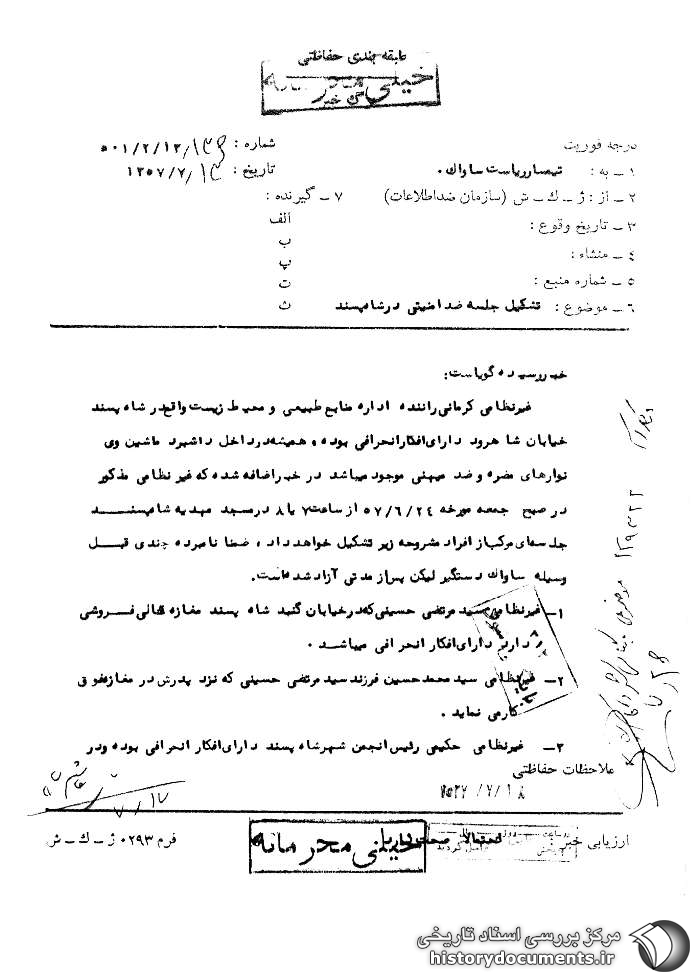 طبقه بندی حفاظتی
خیلی محرمانه
خبر
درجه فوریت
شماره : ۵۰۱/۲/۱۲/
۱ ـ به : تیمسار ریاست ساواک .
تاریخ : ۱۳۵۷/۷/۱۳
۲ ـ از : ژ ـ ک ـ ش (سازمان ضداطلاعات)
۷ ـ گیرنده :
۳ ـ تاریخ وقوع :
الف
ب
۴ ـ منشاء :
پ
۵ ـ شماره منبع :
ت
۶ ـ موضوع : تشکیل جلسه ضد امنیتی در شاه پسند
ث
خبر رسیده گویاست:
غیرنظامی کرمانی راننده اداره منابع طبیعی و محیط زیست واقع در شاه پسند
خیابان شاهرود دارای افکار انحرافی بوده و همیشه در داخل داشبرد ماشین وی
نوارهای مضره و ضد میهنی موجود میباشد در خبر اضافه شده که غیر نظامی مذکور
در صبح جمعه مورخه ۵۷/۶/۲۴ از ساعت ۷ یا ۸ در مسجد مهدیه شاه پسند
جلسه‌ای مرکب از افراد مشروحه زیر تشکیل خواهد داد ، ضمنا نامبرده چندی قبل
وسیله ساواک دستگیر لیکن پس از مدتی آزاد شده است.
۱ـ غیرنظامی سید مرتضی حسینی که در خیابان گنبد شاه پسند مغازه بقالی فروشی
دارد دارای افکار انحرافی میباشد .
۲ـ غیرنظامی سید محمد حسین فرزند سید مرتضی حسینی که نزد پدرش در مغازه فوق
کار می نماید .
۳ـ غیرنظامی حکیمی رئیس انجمن شهر شاه پسند دارای افکار انحرافی بوده و در
ملاحظات حفاظتی
۷/۱۷
ارزیابی خبر : احتمالا صحت دارد
خیلی محرمانه
فرم ۰۲۹۳ ژ ـ ک ـ ش
مرکز بررسی اسناد تاریخی
historydocuments.ir